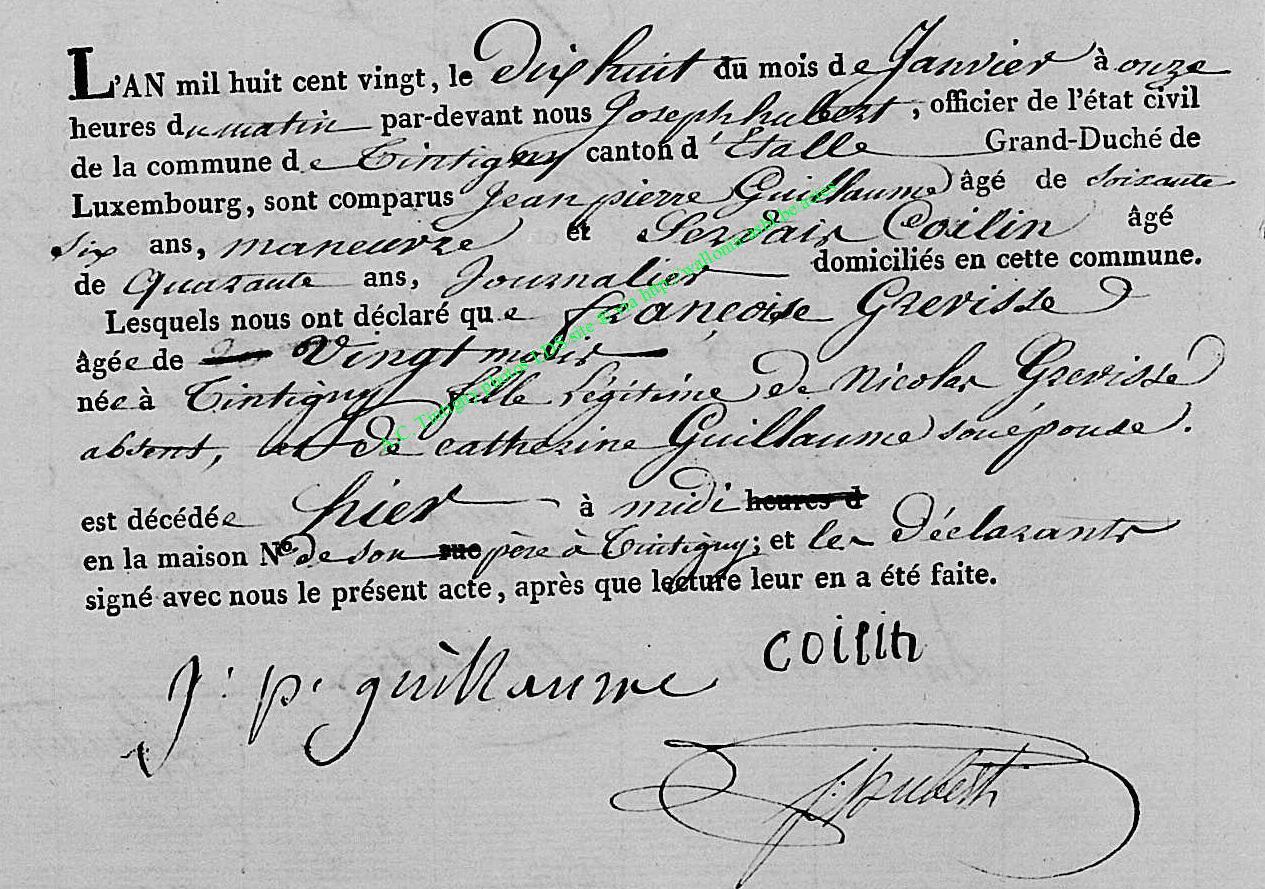 L'AN mil huit cent vingt, le dix huit du mois de Janvier à onze
heures du matin par-devant nous Joseph hubert, officier de l'état civil
de la commune de Tintigny canton d'Étalle Grand-Duché de
Luxembourg, sont comparus Jean pierre Guillaume âgé de Soixante
Six ans, maneuvre et Servais Coilin âgé
de Quarante ans, Journalier domiciliés en cette commune.
Lesquels nous ont déclaré que françoise Grévisse
âgée de Vingt mois
née à Tintigny fille légitime de Nicolas Grévisse
absent, et de catherine Guillaume son épouse.
est décédée hier à midi heures d
en la maison N.º de son rue père à Tintigny; et les Déclarants
signé avec nous le présent acte, après que lecture leur en a été faite.
J: p: guillaume
coilin
j: hubert
A.C. Tintigny photos LDS site © via http://wallonica501.be/arbre